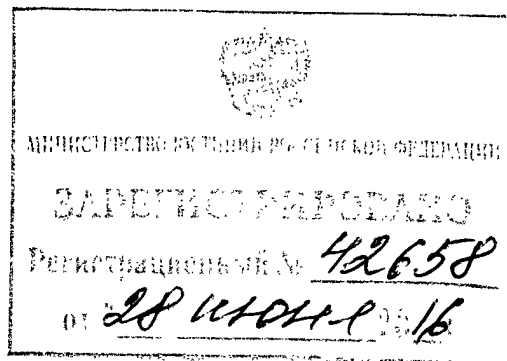 МИНИСТЕРСТВО ЮСТИЦИИ РОССИЙСКОЙ ФЕДЕРАЦИИ
ЗАРЕГИСТРИРОВАНО
Регистрационный № 42658
от "28 июня 2016